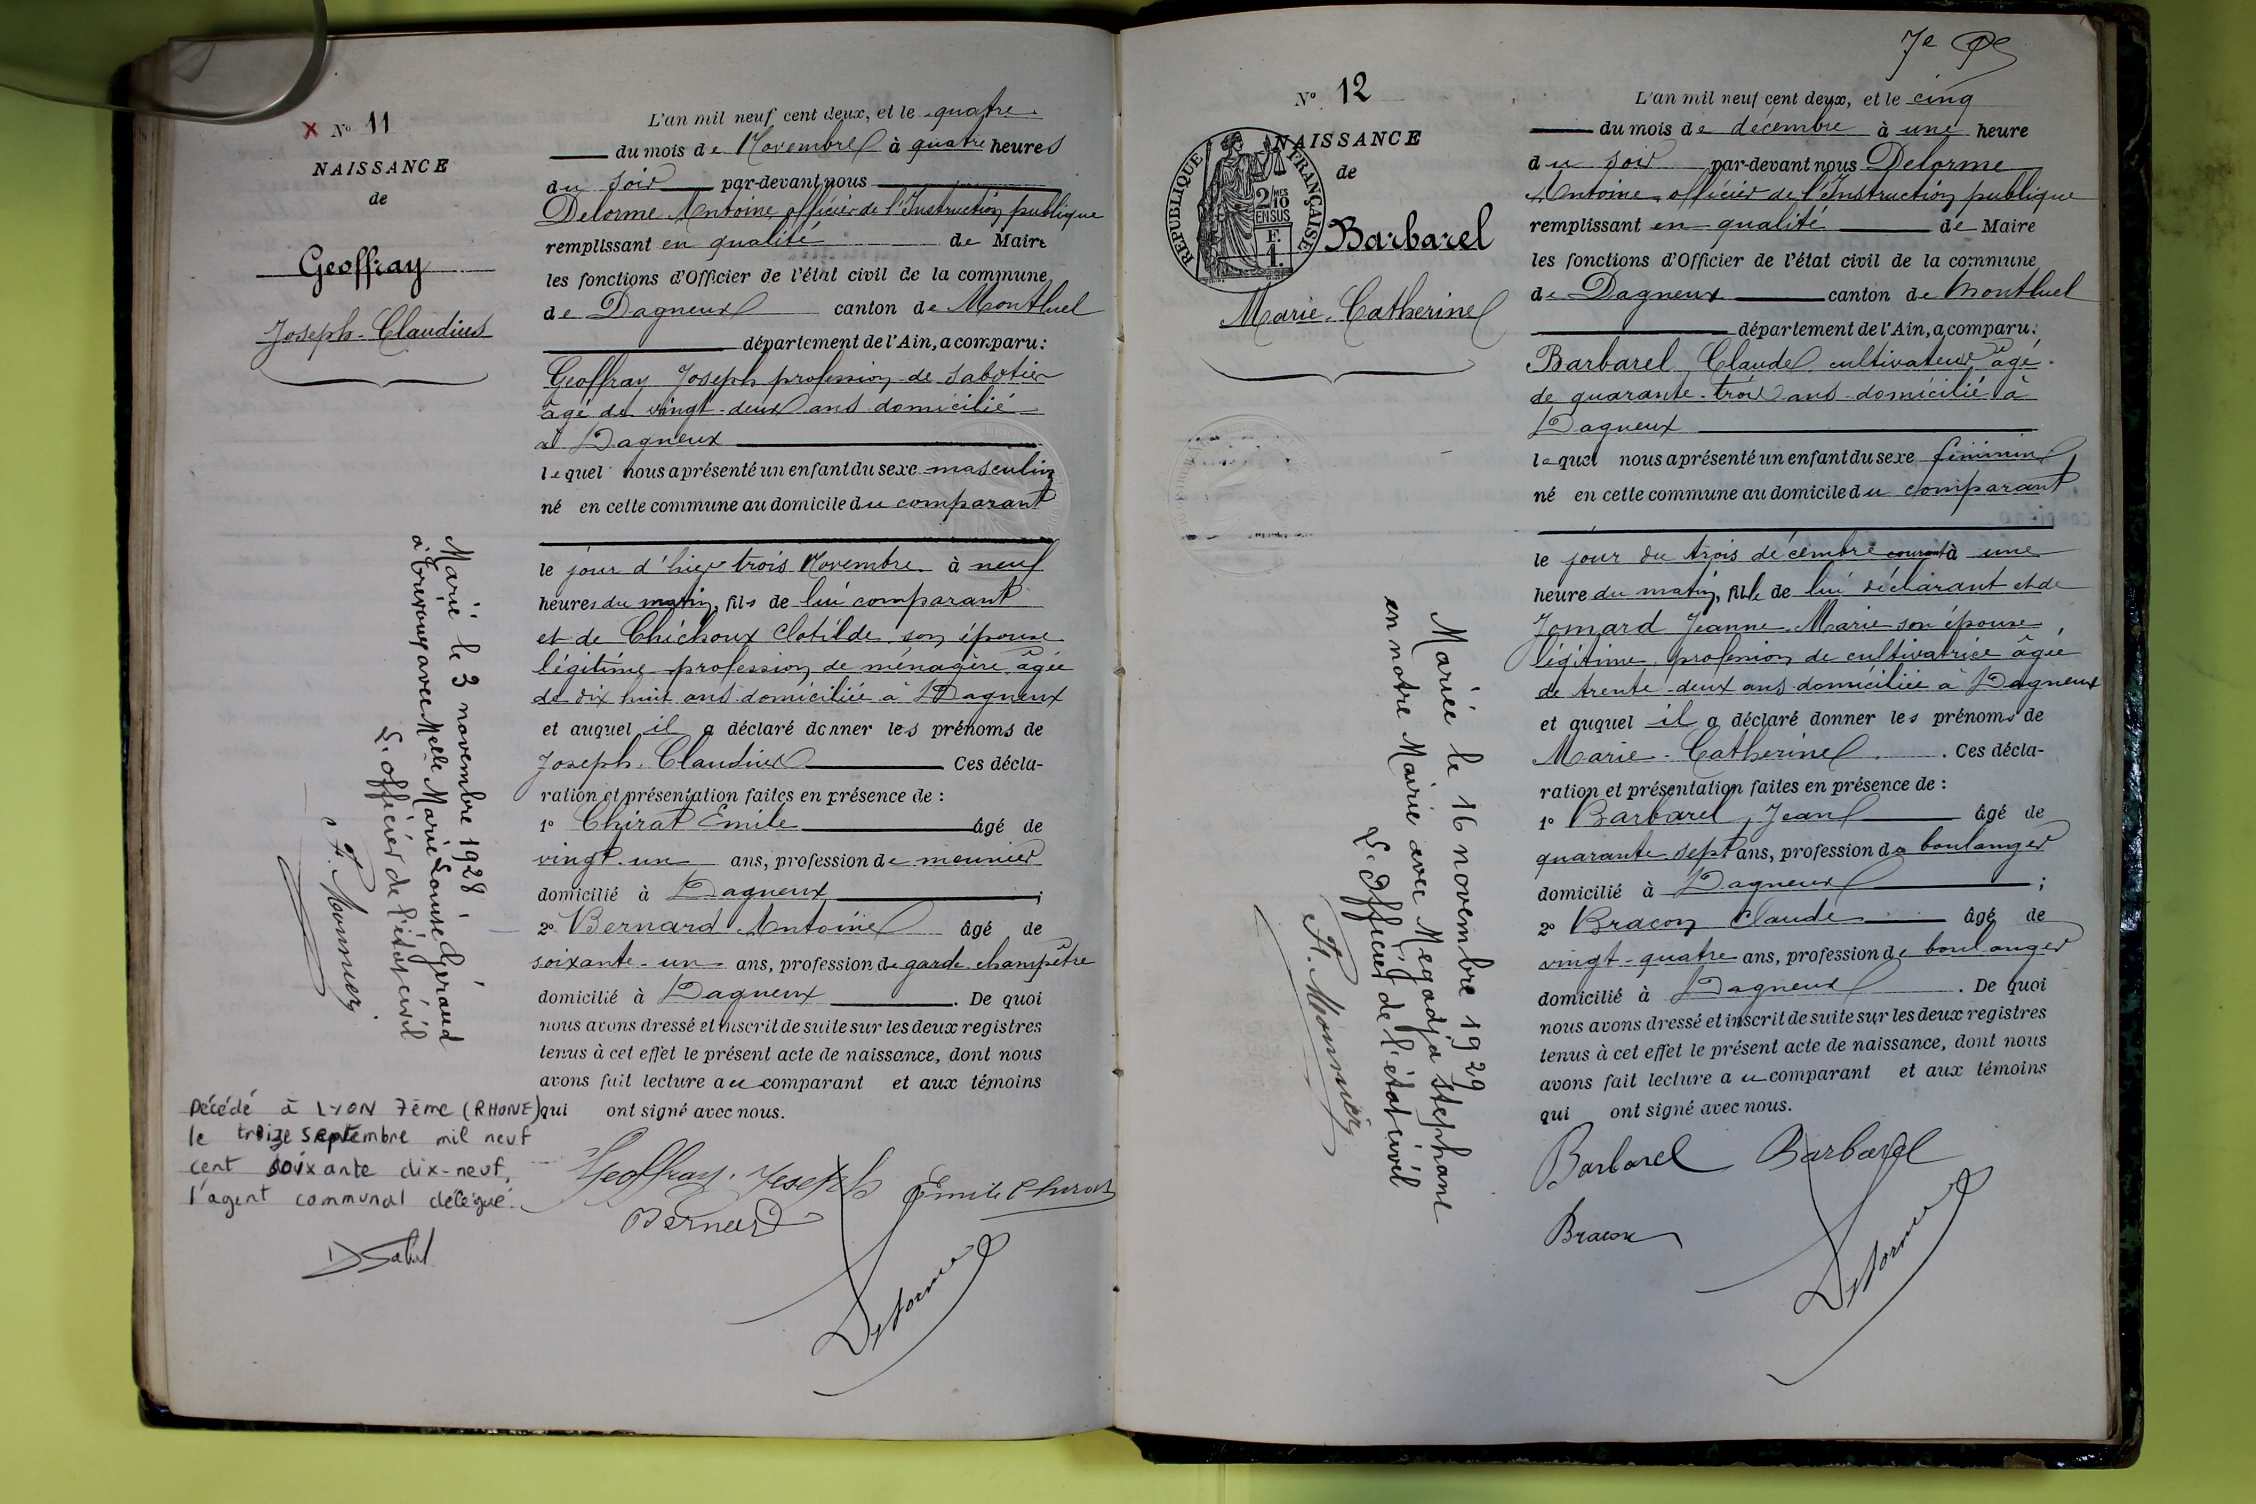 N° 11
NAISSANCE
de
Geoffray
Joseph-Claudius
L'an mil neuf cent deux, et le quatre
du mois de Novembre à quatre heures
du soir par-devant nous
Delorme Antoine officier de l'Instruction publique
remplissant en qualité de Maire
les fonctions d'Officier de l'état civil de la commune
de Dagneux canton de Montluel
département de l'Ain, a comparu:
Geoffray Joseph profession de sabotier
âgé de vingt-deux ans domicilié
à Dagneux
lequel nous a présenté un enfant du sexe masculin
né en cette commune au domicile du comparant
le jour d'hier trois Novembre à neuf
heures du matin, fils de lui comparant
et de Chichoux Clotilde son épouse
légitime profession de ménagère âgée
de dix huit ans domiciliée à Dagneux
et auquel il a déclaré donner les prénoms de
Joseph-Claudius Ces décla-
ration et présentation faites en présence de :
1° Chirat Emile âgé de
vingt-un ans, profession de meunier
domicilié à Dagneux ;
2° Bernard Antoine âgé de
soixante-un ans, profession de garde champêtre
domicilié à Dagneux . De quoi
nous avons dressé et inscrit de suite sur les deux registres
tenus à cet effet le présent acte de naissance, dont nous
avons fait lecture au comparant et aux témoins
qui ont signé avec nous.
Geoffray Joseph Emile Chirat
Bernard
Delorme
Marié le 3 novembre 1928
à Trévoux avec Melle Marie Louise Géraud
L'officier de l'état civil
F. Mounier
Décédé à LYON 7ème (RHONE)
le treize septembre mil neuf
cent soixante dix-neuf,
l'agent communal délégué.
7e
N° 12
NAISSANCE
de
RÉPUBLIQUE FRANÇAISE
2/10MES
EN SUS
F.
1.
Barbarel
Marie-Catherine
L'an mil neuf cent deux, et le cinq
du mois de décembre à une heure
du soir par-devant nous Delorme
Antoine, officier de l'Instruction publique
remplissant en qualité de Maire
les fonctions d'Officier de l'état civil de la commune
de Dagneux canton de Montluel
département de l'Ain, a comparu:
Barbarel Claude cultivateur âgé
de quarante-trois ans domicilié à
Dagneux
lequel nous a présenté un enfant du sexe féminin
né en cette commune au domicile du comparant
le jour du trois décembre courant à une
heure du matin, fille de lui déclarant et de
Jomard Jeanne-Marie son épouse
légitime, profession de cultivatrice âgée
de trente-deux ans domiciliée à Dagneux
et auquel il a déclaré donner les prénoms de
Marie-Catherine . Ces décla-
ration et présentation faites en présence de :
1° Barbarel Jean âgé de
quarante sept ans, profession de boulanger
domicilié à Dagneux ;
2° Bracon Claude âgé de
vingt-quatre ans, profession de boulanger
domicilié à Dagneux . De quoi
nous avons dressé et inscrit de suite sur les deux registres
tenus à cet effet le présent acte de naissance, dont nous
avons fait lecture au comparant et aux témoins
qui ont signé avec nous.
Barbarel Barbarel
Bracon
Delorme
Mariée le 16 novembre 1929
en notre Mairie avec Megadja Stephane
L'Officier de l'état civil
F. Mounier